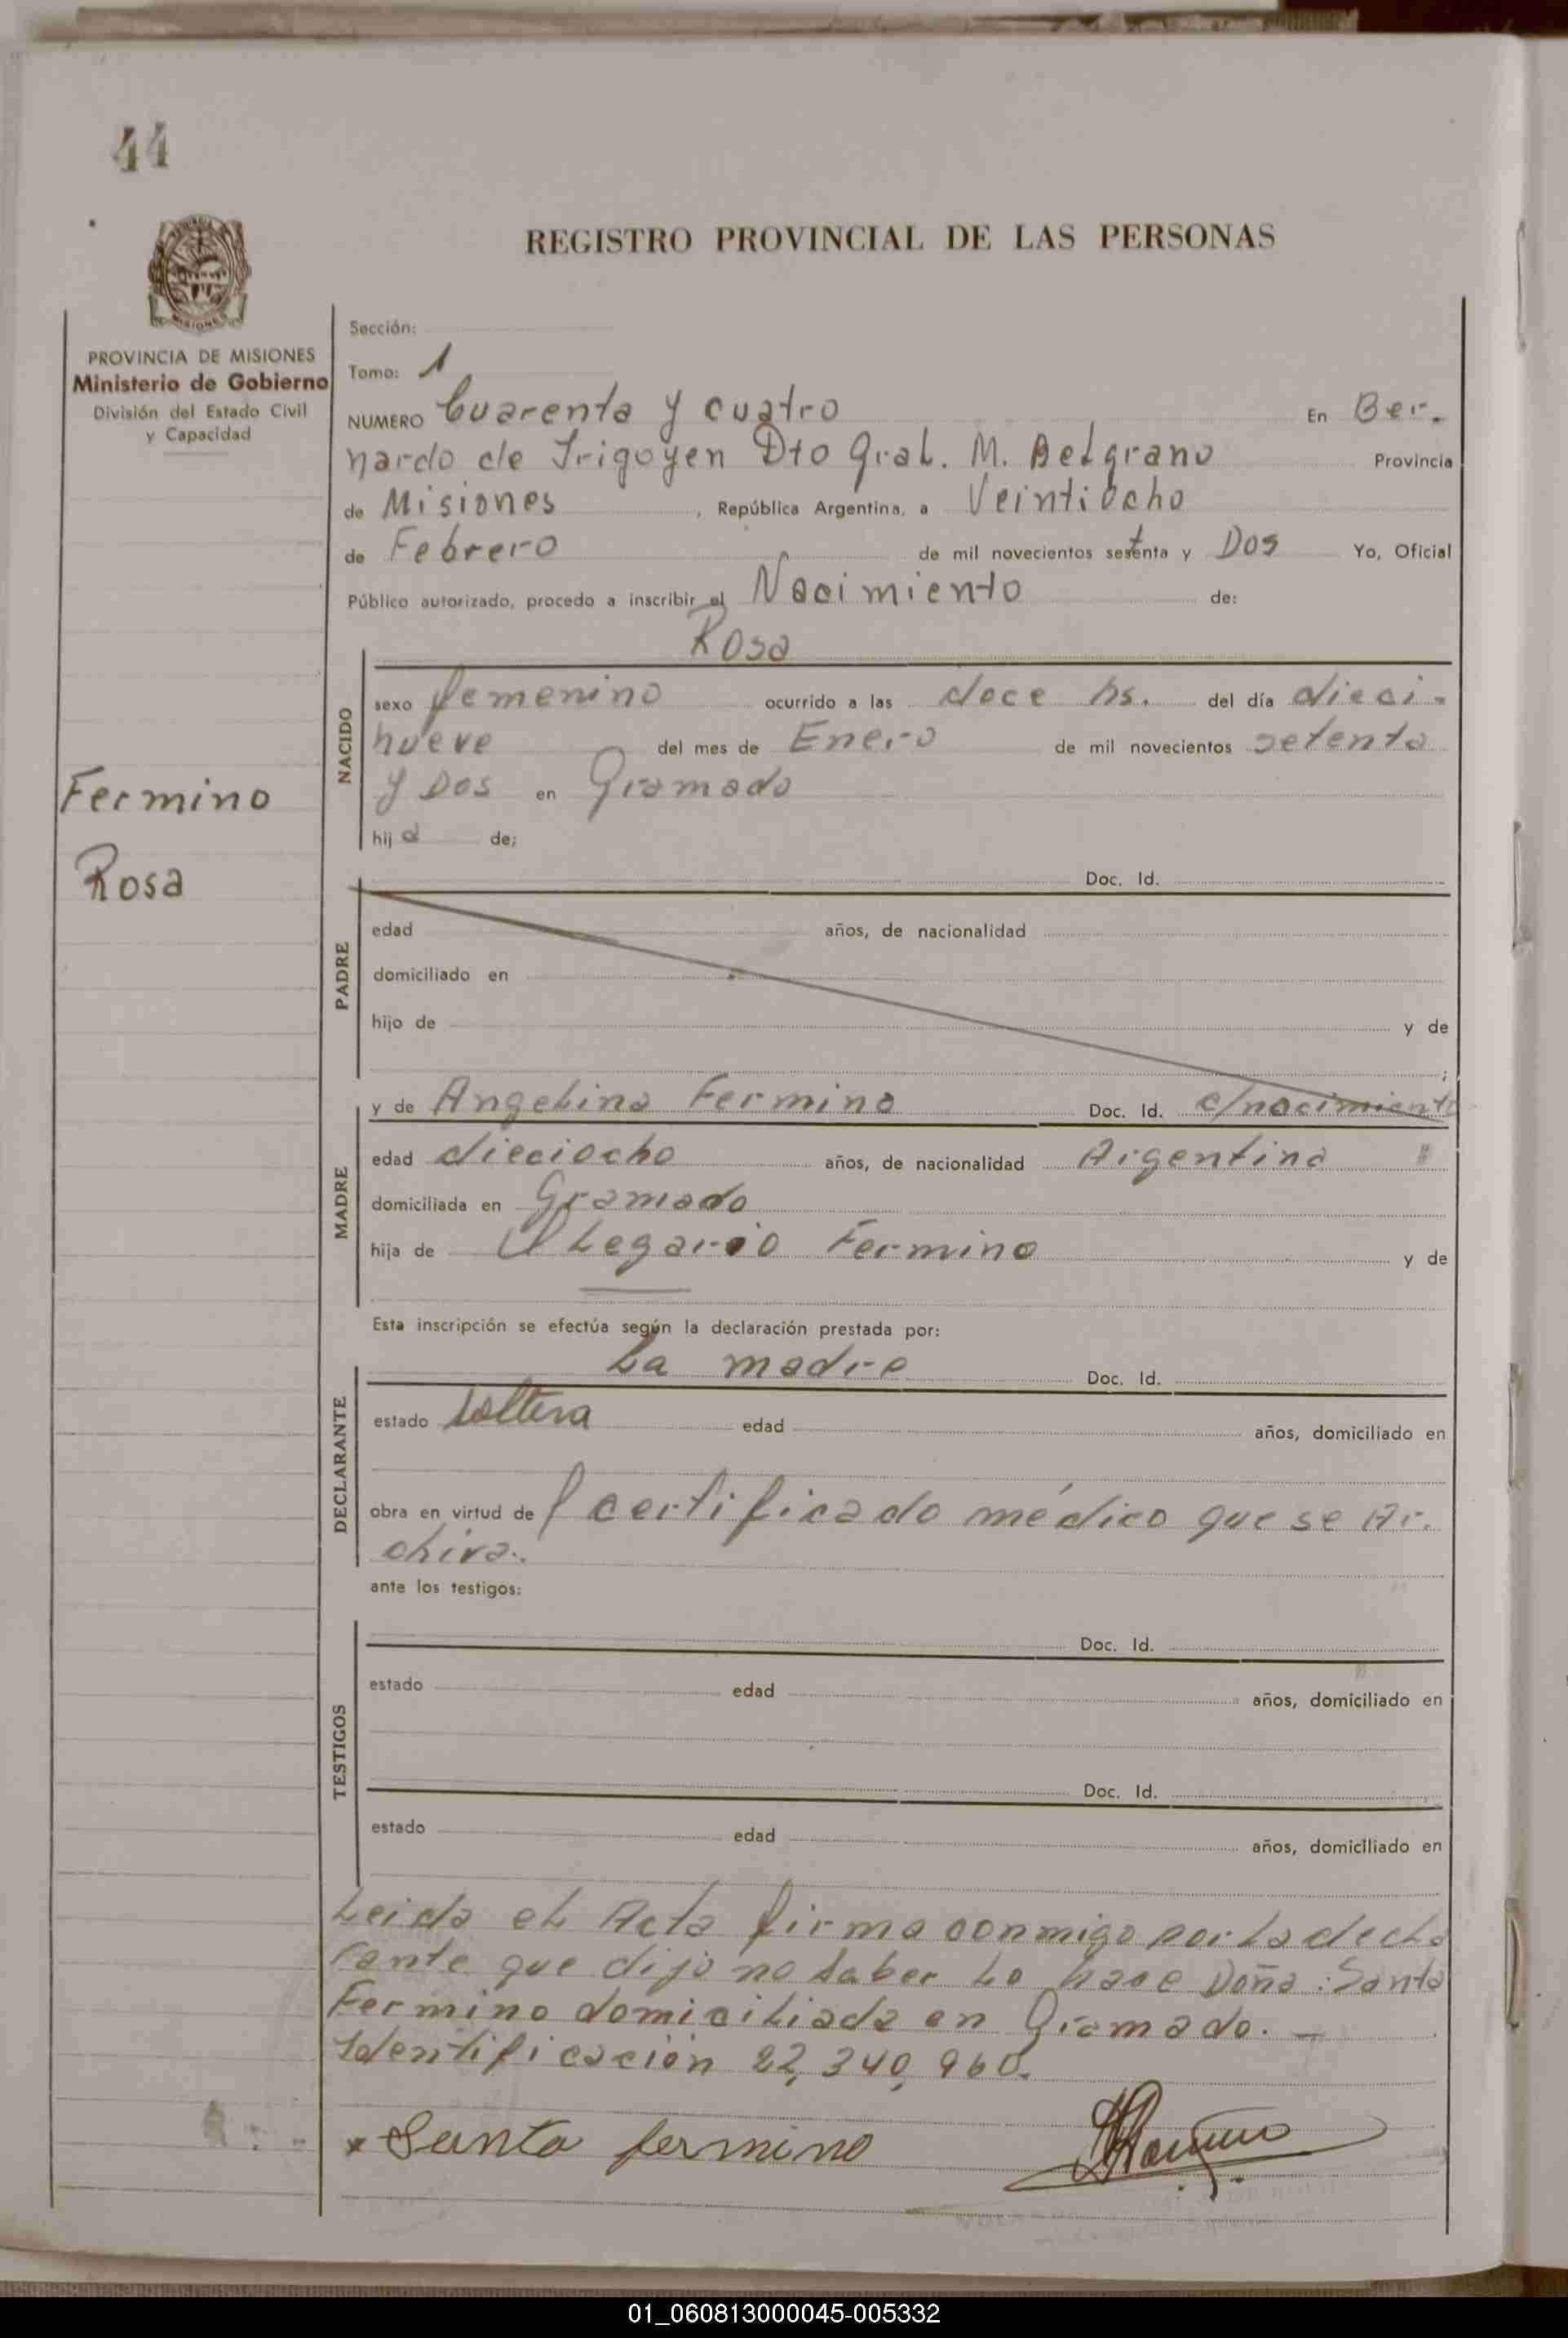 44
REGISTRO PROVINCIAL DE LAS PERSONAS
MISIONES
PROVINCIA DE MISIONES
Ministerio de Gobierno
División del Estado Civil
y Capacidad
Fermino
Rosa
Sección:
Tomo: 1
NUMERO Cuarenta y cuatro En Ber.
nardo de Irigoyen Dto Gral. M. Belgrano Provincia
de Misiones, República Argentina, a Veintiocho
de Febrero de mil novecientos setenta y Dos Yo, Oficial
Público autorizado, procedo a inscribir el Nacimiento de:
Rosa
NACIDO
sexo femenino ocurrido a las doce hs. del día dieci-
nueve del mes de Enero de mil novecientos setenta
y Dos en Gramado
hija de;
PADRE
Doc. Id.
edad años, de nacionalidad
domiciliado en
hijo de y de
;
MADRE
y de Angelina Fermino Doc. Id. c/nacimiento
edad dieciocho años, de nacionalidad Argentina
domiciliada en Gramado
hija de Olegario Fermino y de
Esta inscripción se efectúa según la declaración prestada por:
DECLARANTE
La madre Doc. Id.
estado soltera edad años, domiciliado en
obra en virtud de l certificado médico que se Ar.
chiva.
ante los testigos:
TESTIGOS
Doc. Id.
estado edad años, domiciliado en
Doc. Id.
estado edad años, domiciliado en
Leida el Acta firma conmigo por la decla
rante que dijo no saber lo hace Doña: Santa
Fermino domiciliada en Gramado. —
Identificación 22,340,960.
x Santa fermino
01_060813000045-005332